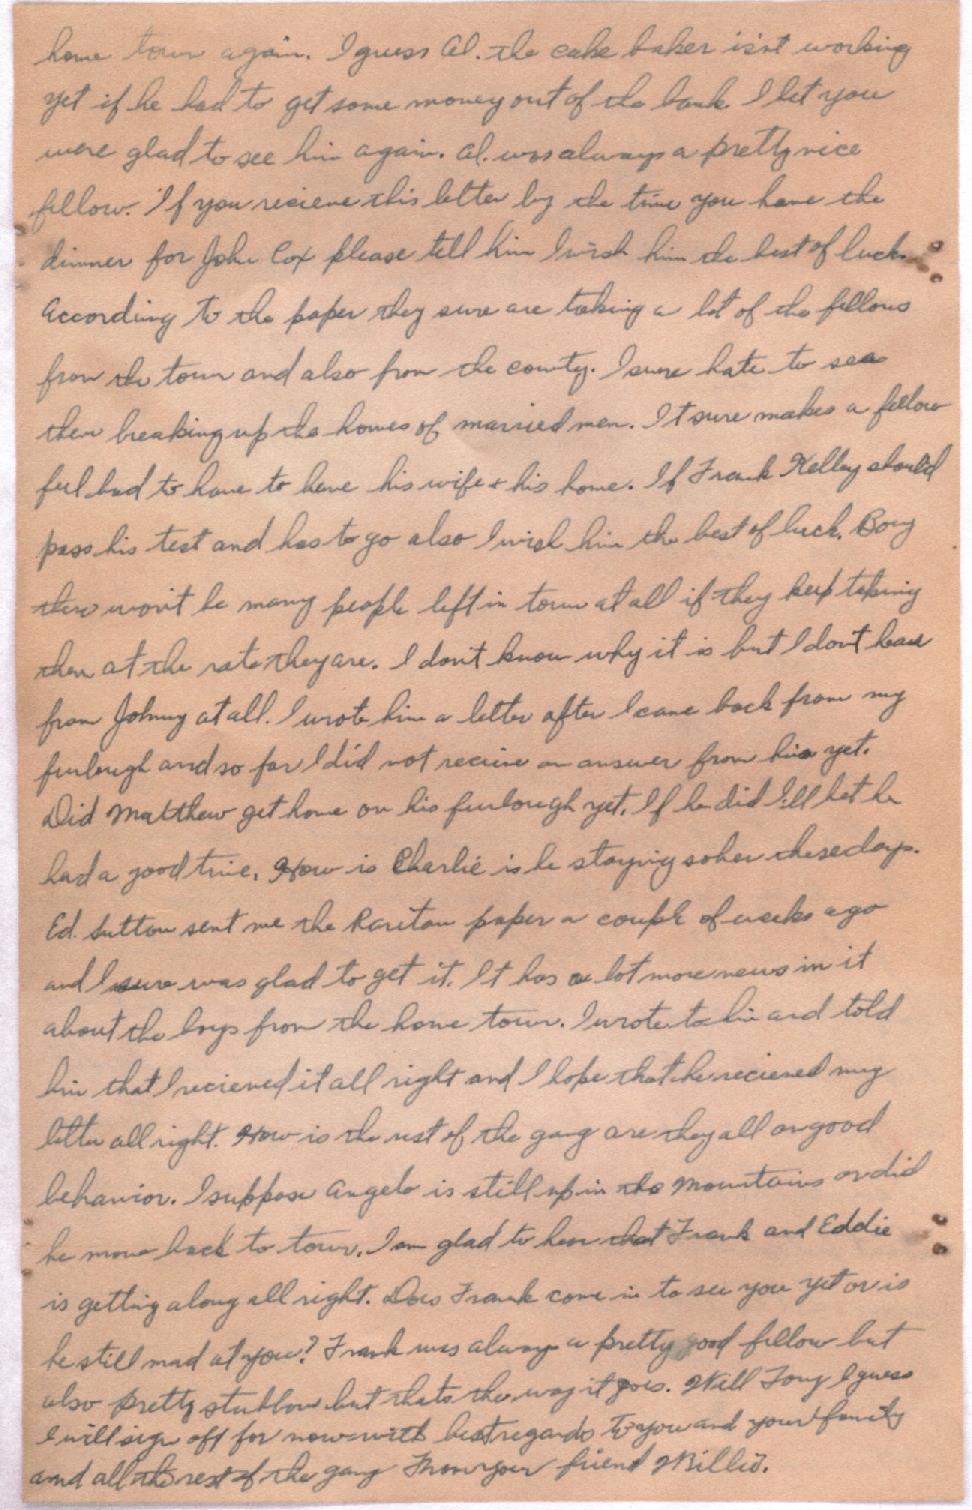 home town again. I guess Al. the cake baker isn't working
yet if he had to get some money out of the bank. I bet you
were glad to see him again. Al. was always a pretty nice
fellow. If you recieve this letter by the time you have the
dinner for John Cox please tell him I wish him the best of luck.
According to the paper they sure are taking a lot of the fellows
from the town and also from the county. I sure hate to see
them breaking up the homes of married men. It sure makes a fellow
feel bad to have to leave his wife & his home. If Frank Kelley should
pass his test and has to go also I wish him the best of luck. Boy
there won't be many people left in town at all if they keep taking
them at the rate they are. I don't know why it is but I don't hear
from Johnny at all. I wrote him a letter after I came back from my
furlough and so far I did not recieve an answer from him yet.
Did Matthew get home on his furlough yet. If he did I'll bet he
had a good time. How is Charlie is he staying sober these days.
Ed. Sutton sent me the Raritan paper a couple of weeks ago
and I sure was glad to get it. It has a lot more news in it
about the boys from the home town. I wrote to him and told
him that I recieved it all right and I hope that he recieved my
letter all right. How is the rest of the gang are they all on good
behavior. I suppose Angelo is still up in the Mountains or did
he move back to town. I am glad to hear that Frank and Eddie
is getting along all right. Does Frank come in to see you yet or is
he still mad at you? Frank was always a pretty good fellow but
also pretty stubborn but thats the way it goes. Well Tony I guess
I will sign off for now with best regards to you and your family
and all the rest of the gang From your friend Willie.